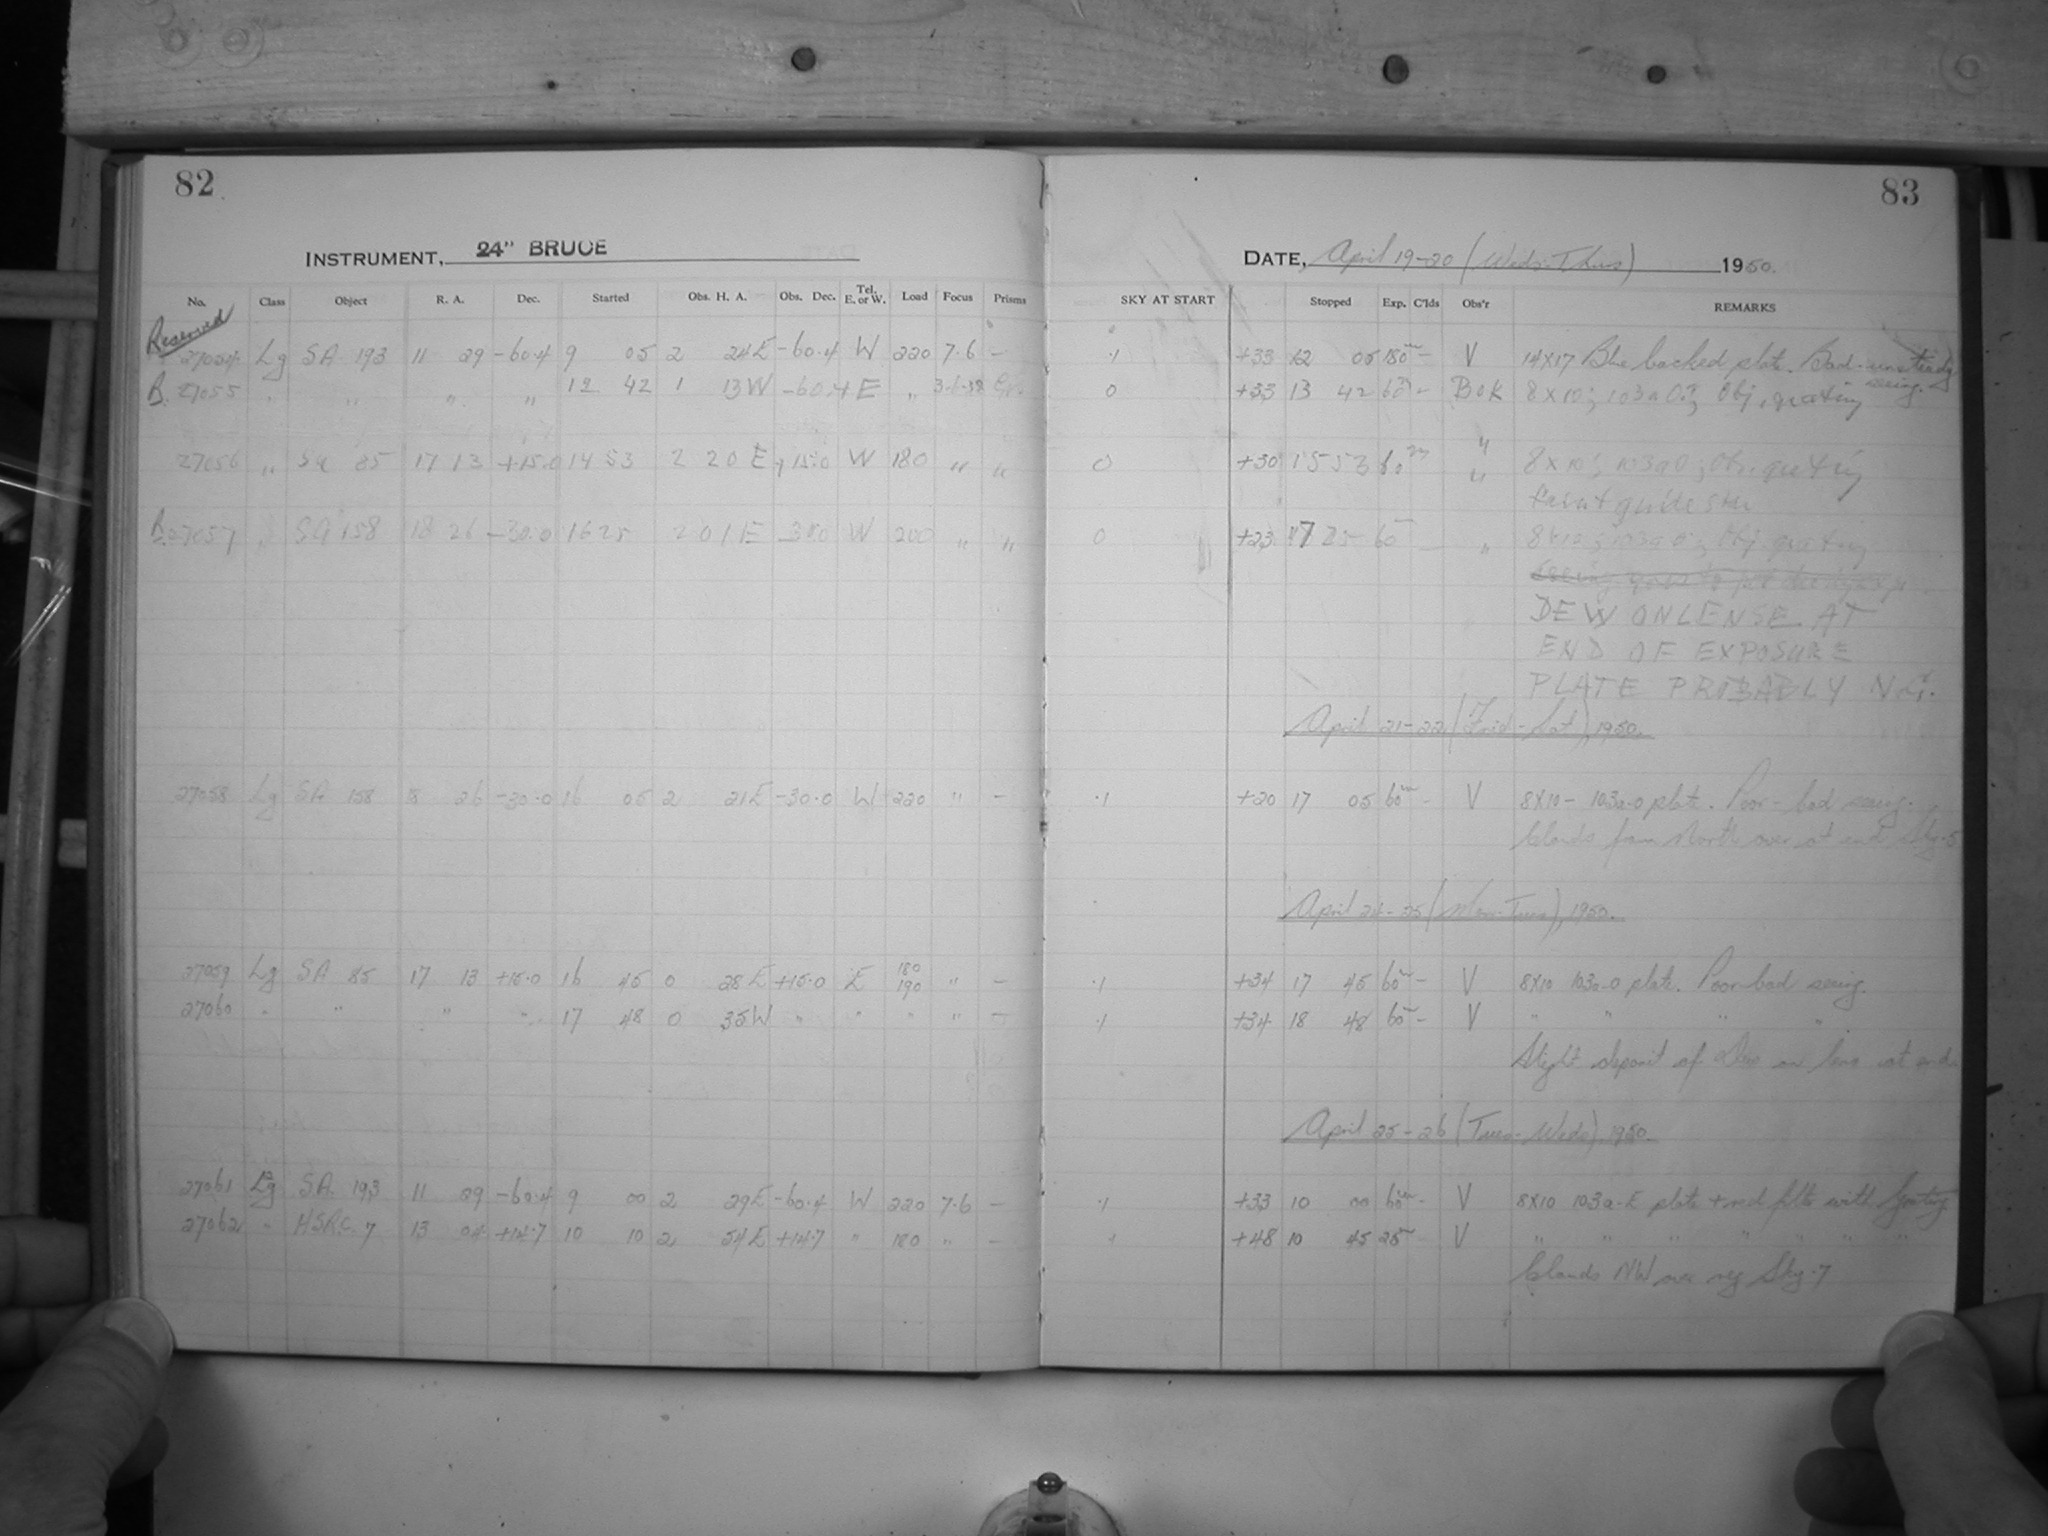 82
83
INSTRUMENT, 24" BRUCE
DATE, April 19-20 (Weds-Thus) 1950.
No. Class Object R. A. Dec. Started Obs. H. A. Obs. Dec. Tel. E. or W. Load Focus Prisms SKY AT START Stopped Exp. C'lds Obs'r REMARKS
Reserved
27054 Lg SA 193 11 29 -60.4 9 05 2 24E -60.4 W 220 7.6 - .1 +33 12 05 180m - V 14X17 Blue backed plate. Bad-unsteady seeing.
B. 27055 " " " " 12 42 1 13W -60.4 E " 0 +33 13 42 60m - BOK 8X10; 103aO; Obj. grating
27056 " SA 85 17 13 +15.0 14 53 2 20E +15.0 W 180 " " 0 +30 15 53 60m " 8X10; 103aO; Obj. grating
" faint guide star
B. 27057 " SA 158 18 26 -30.0 16 25 2 01E -30.0 W 200 " " 0 +23 17 25 60 - " 8X10; 103aO; Obj grating
DEW ON LENSE AT
END OF EXPOSURE
PLATE PROBABLY N.G.
April 21-22 (Frid-Sat), 1950.
27058 Lg SA 158 18 26 -30.0 16 05 2 21E -30.0 W 220 " - .1 +20 17 05 60m - V 8X10 - 103a-O plate. Poor-bad seeing.
Clouds from North over at end Sky .5
April 24-25 (Mon-Tues), 1950.
27059 Lg SA 85 17 13 +15.0 16 45 0 28E +15.0 E 180 190 " - .1 +34 17 45 60m - V 8X10 103a-O plate. Poor-bad seeing.
27060 " " " " 17 48 0 35W " " " " - .1 +34 18 48 60m - V " " " "
Slight deposit of Dew on lens at end.
April 25-26 (Tues-Weds), 1950.
27061 Lg SA 193 11 29 -60.4 9 00 2 29E -60.4 W 220 7.6 - .1 +33 10 00 60m - V 8X10 103a-E plate + red filter with Grating
27062 " HSRC 7 13 04 +14.7 10 10 2 54E +14.7 " 180 " - .1 +48 10 45 25m - V " " " " " " "
Clouds NW over reg Sky .7